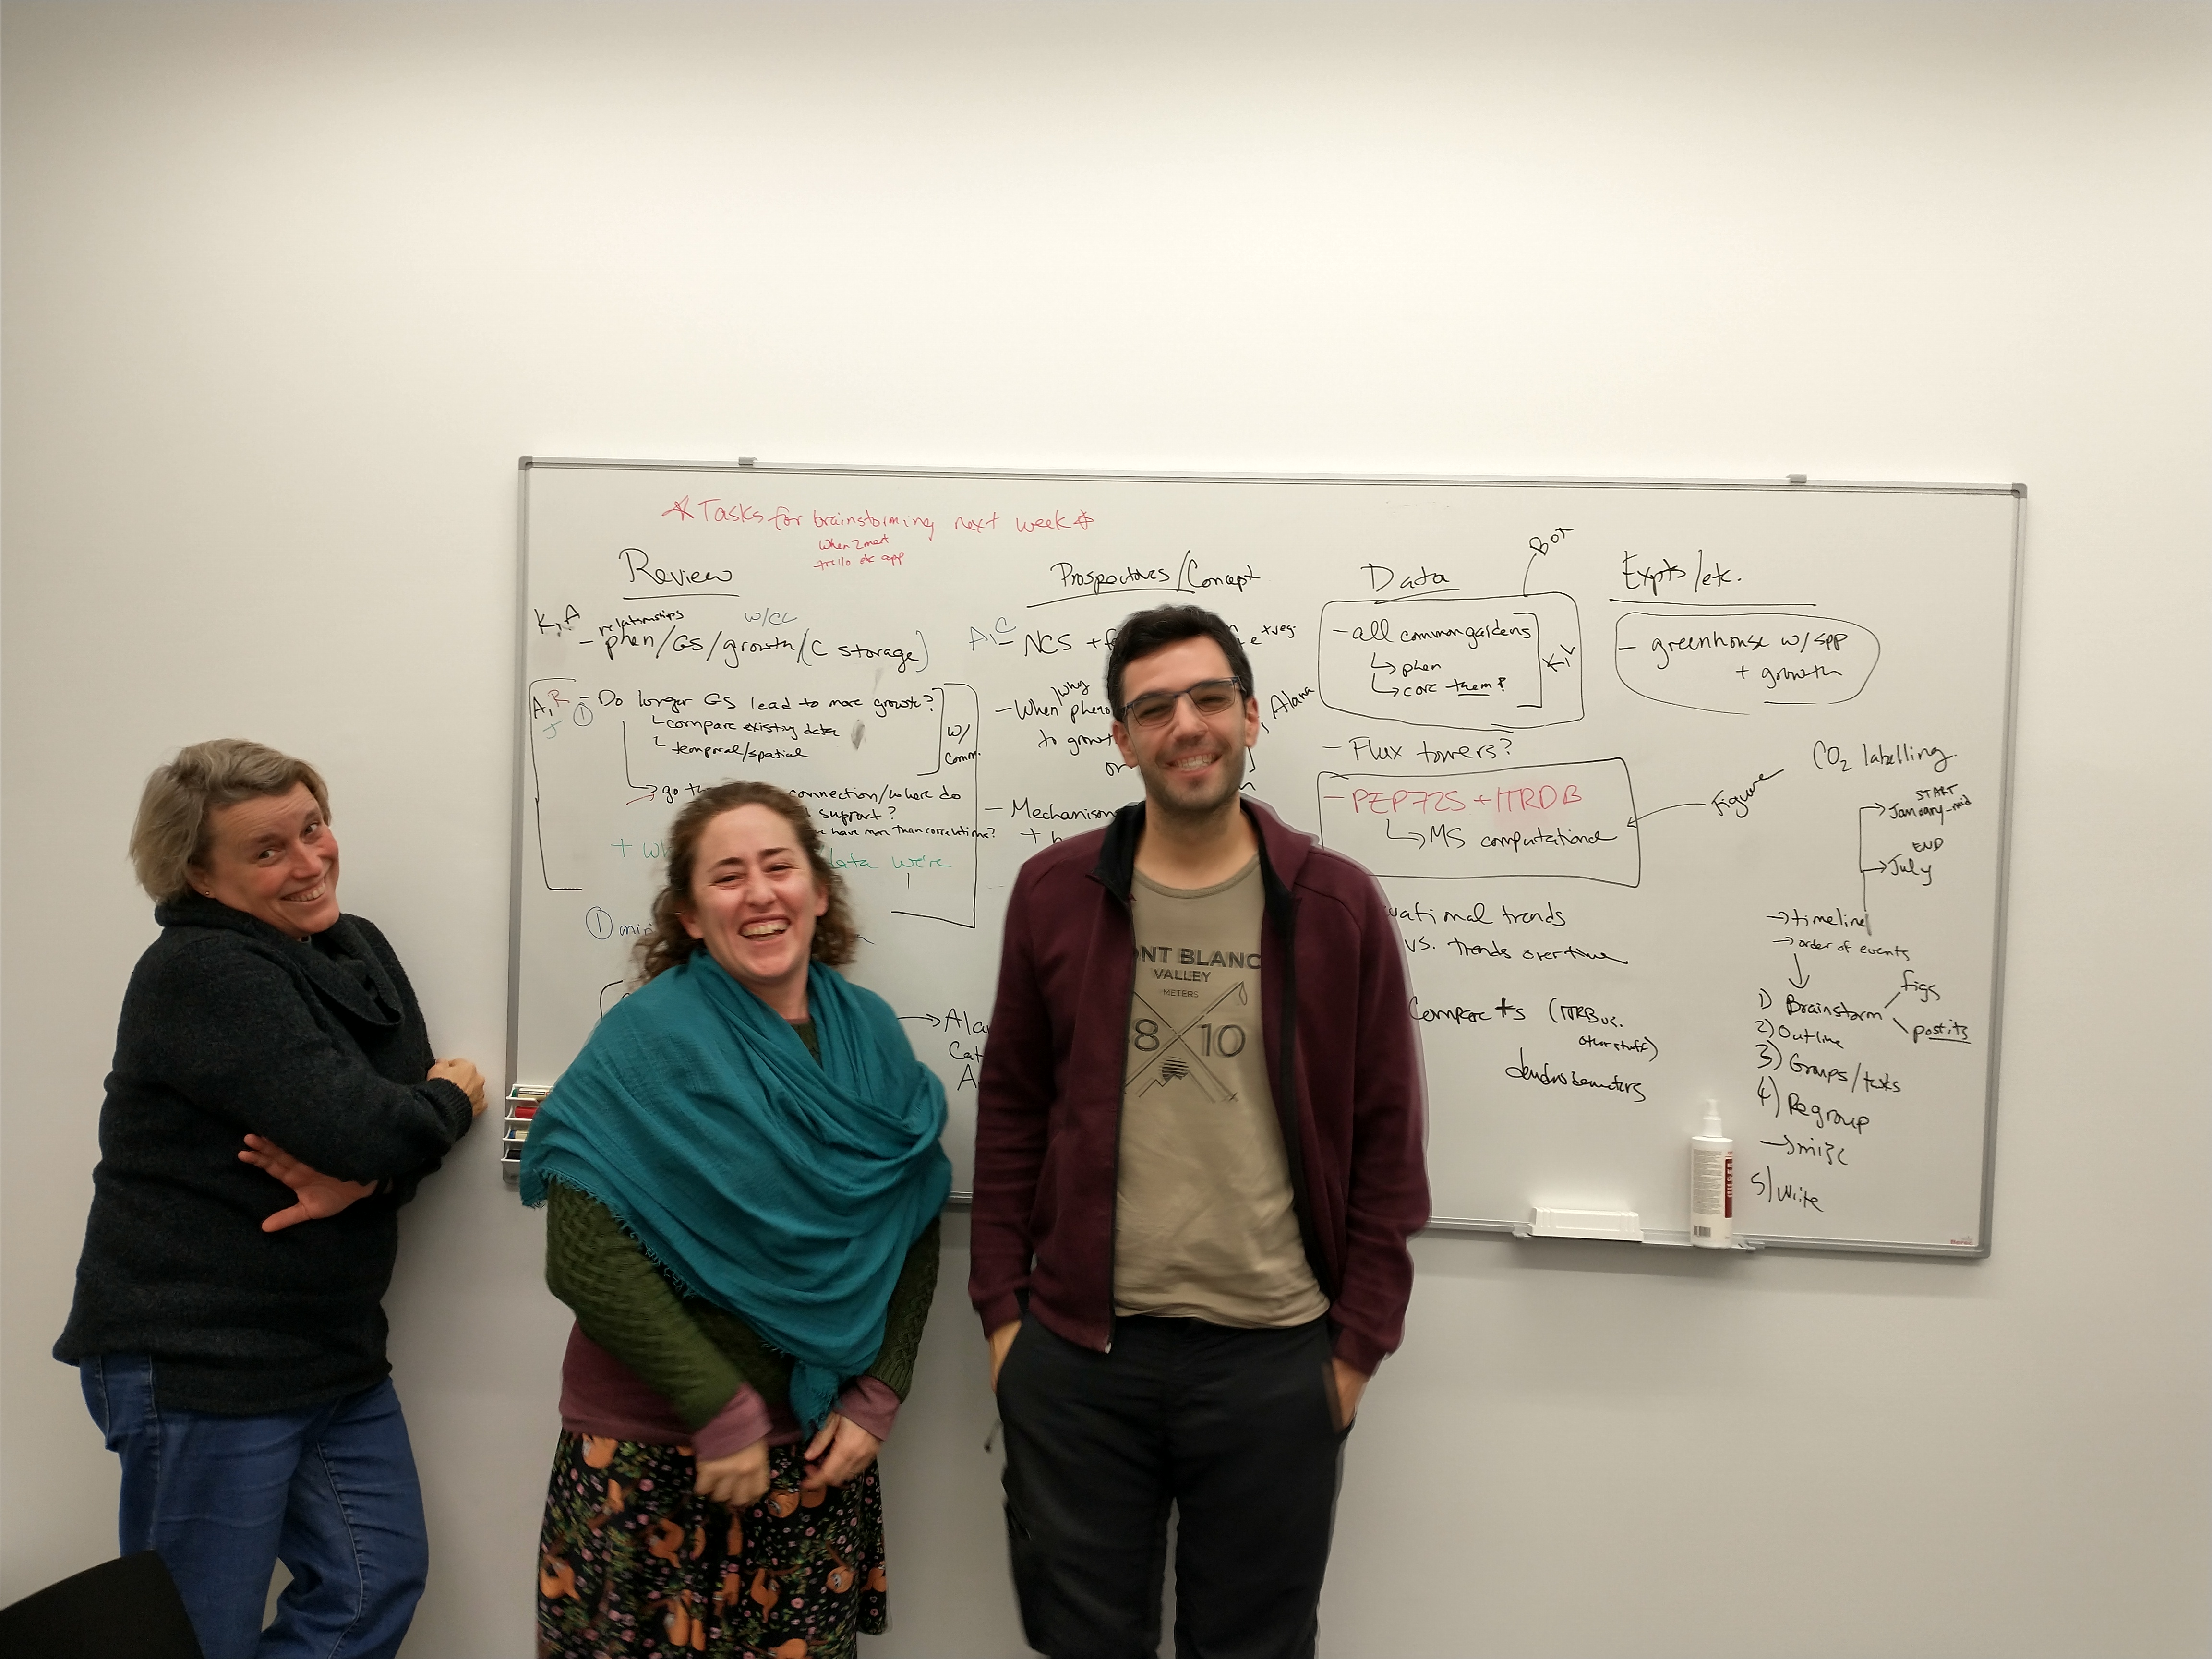 * Tasks for brainstorming next week *
When2meet
trello etc app
Review
K, A
relationships
w/CC
- phen/GS/growth/(C storage)
A, R
J
① - Do longer GS lead to more growth?
↳ compare existing data
↳ temporal/spatial
w/
Comm.
→ go
connection/where do
support?
have more than correlations?
+ wh
data we're
①
→ Ala
Cat
A
Prospectives/Concept
A, C
- NCS + f
+ veg.
why
- When pheno
to growt
or
, Alana
- Mechanism
+
Data
BOX
- all common gardens
↳ phen
↳ core them?
K, V
- Flux towers?
- PEP725 + ITRDB
↳ MS computational
Figure
vational trends
vs. trends over time
Compare ts (ITRB vs.
other stuff)
dendrobometers
Expts/etc.
- greenhouse w/spp
+ growth
CO2 labelling
START
→ January-mid
END
→ July
→ timeline
→ order of events
1) Brainstorm
figs
postits
2) Outline
3) Groups/tasks
4) Regroup
5) Write
ONT BLANC
VALLEY
METERS
8 10